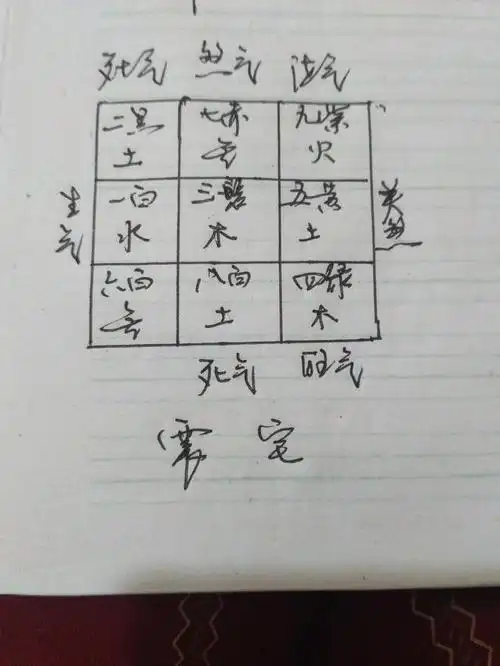 死气 煞气 泄气
二黑 七赤 九紫
土 金 火
生气
一白 三碧 五黄
水 木 土
关煞
六白 八白 四绿
金 土 木
死气 旺气
震 宅